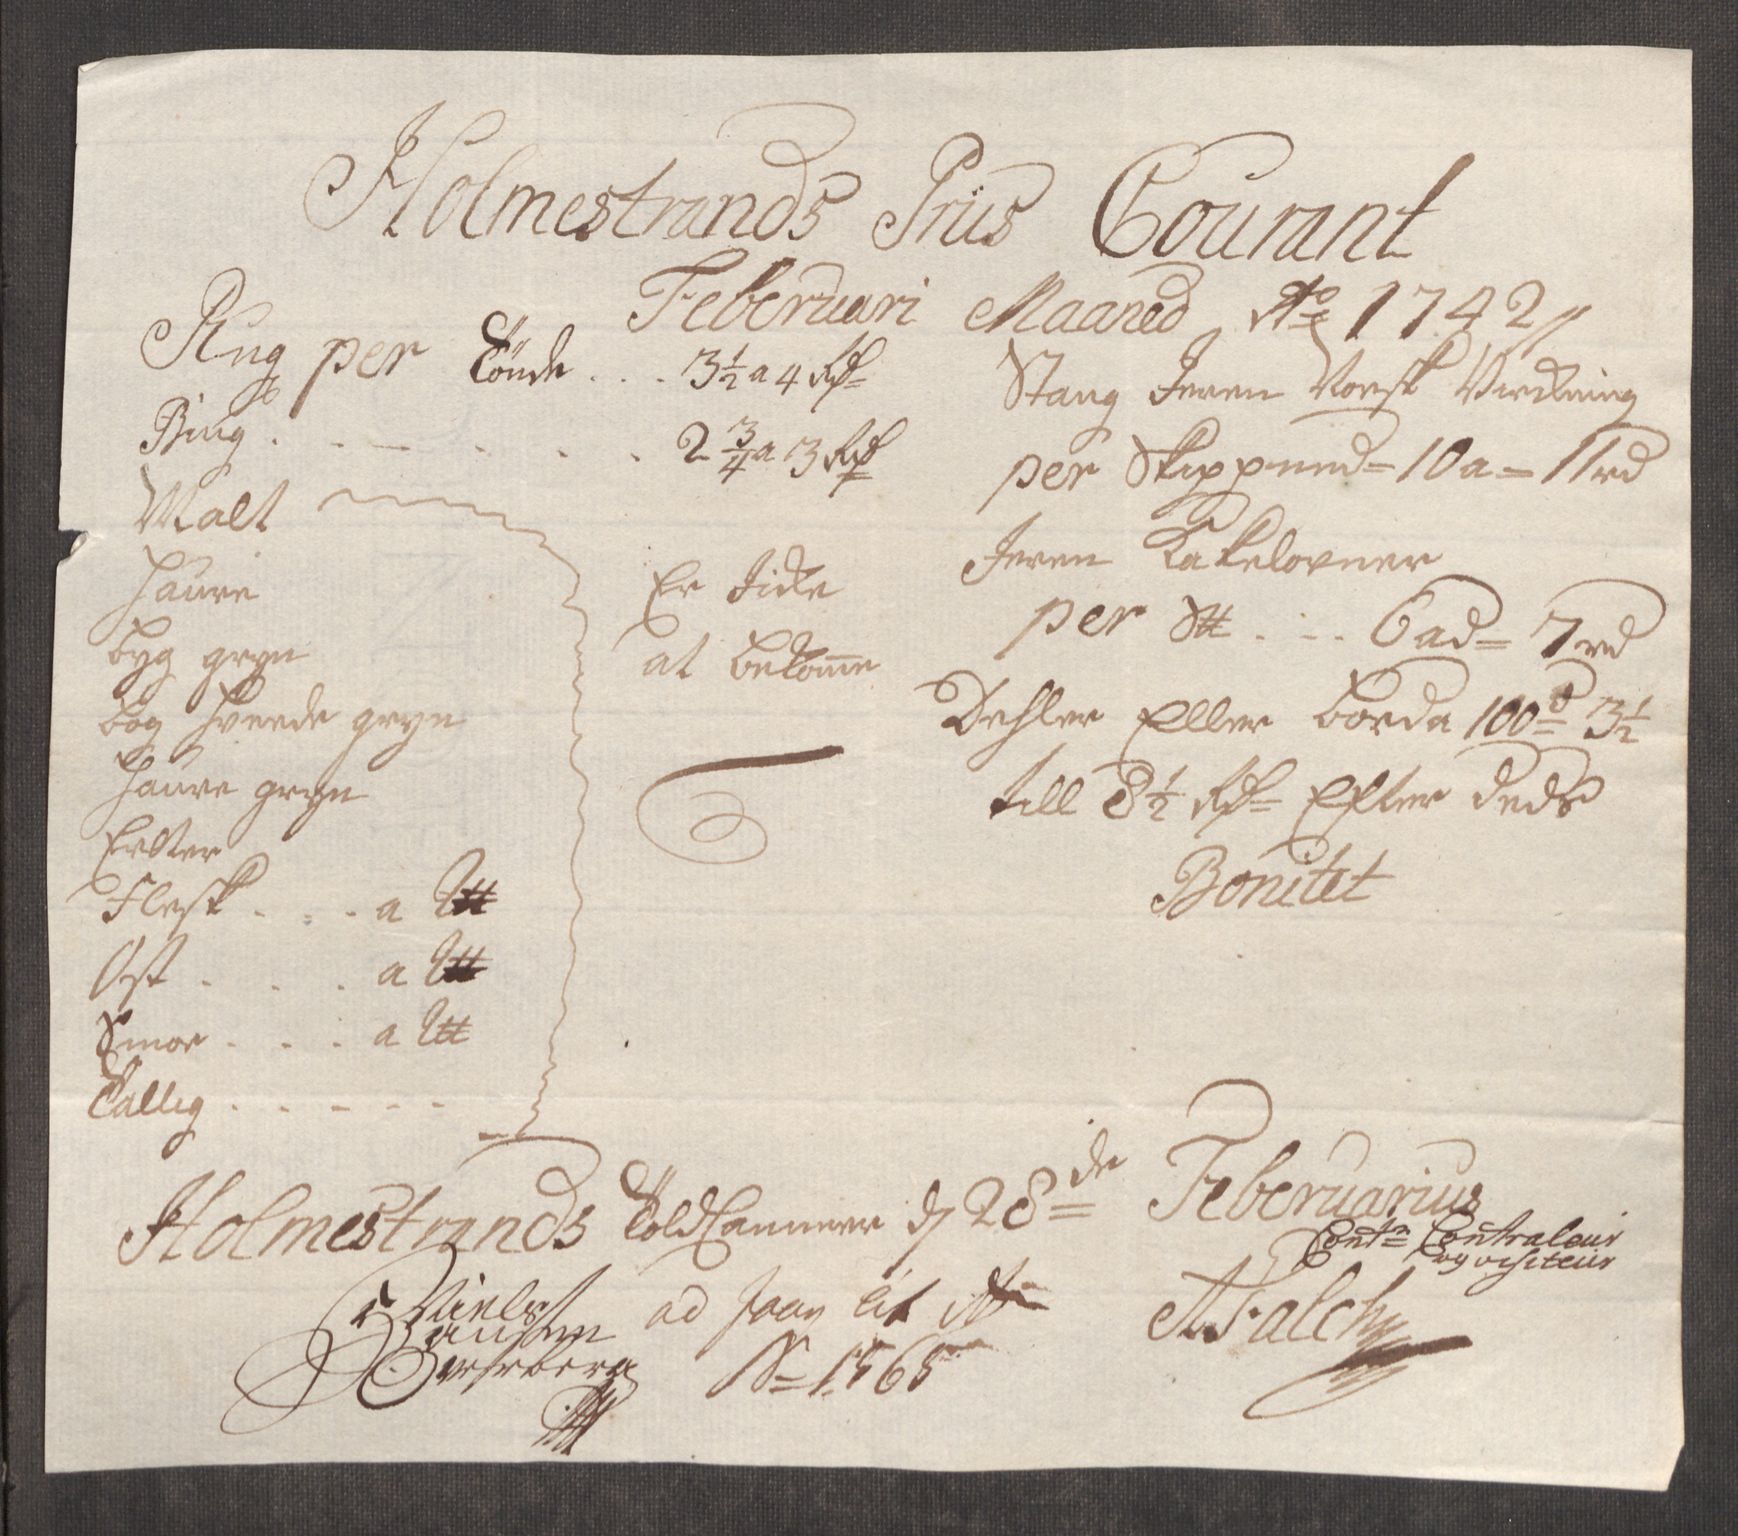 Holmestrands Priis Courant
Feberuari Maaned Ao 1742
Rug per Tönde . . . 3½ a 4 Rd
Biug . . . . . . 2¾ a 3 Rd
Malt
Haure
byg gryn
bog Hveede gryn
Haure gryn
Erter
Flesk . . . a
Ost . . . a
Smør . . . a
Tallig . . . . .
Er Icke
at bekome
Stang Jeren Norsk Virckning
per Skippund = 10 a = 11 rd
Jeren Kakelovner
per . . . 6 ad = 7 rd
Dehler Eller borde 100d 3½
till 8½ Rd Efter deds
Bonitet
Holmestrands Told Cammer d 28de Feberuarius
Contr Contraleur
og visiteur
Niels
Hansen
ad lit A
No 1565
A Falch